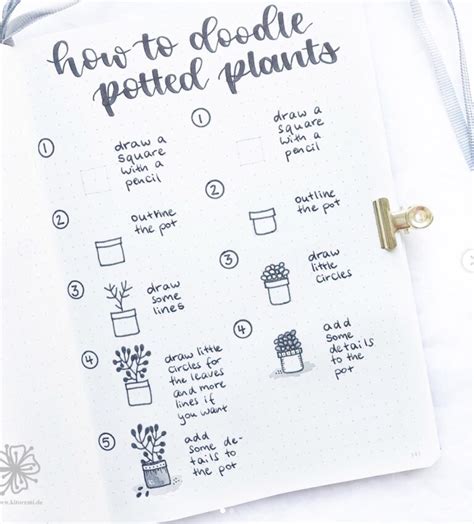 how to doodle
potted plants
1
draw a
square
with a
pencil
2
outline
the pot
3
draw
some
lines
4
draw little
circles for
the leaves
and more
lines if
you want
5
add
some de-
tails to
the pot
1
draw a
square
with a
pencil
2
outline
the pot
3
draw
little
circles
4
add
some
details
to the
pot